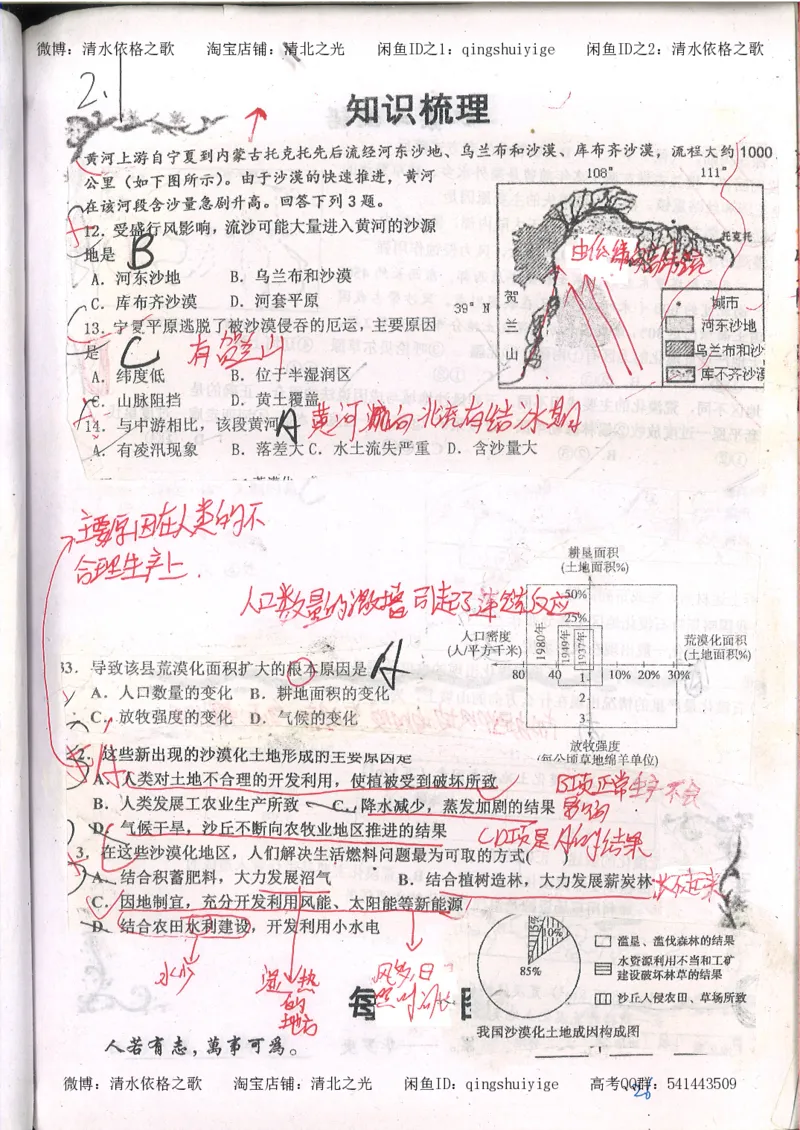 微博：清水依格之歌 淘宝店铺：清北之光 闲鱼ID之1：qingshuiyige 闲鱼ID之2：清水依格之歌
2.
知识梳理
黄河上游自宁夏到内蒙古托克托先后流经河东沙地、乌兰布和沙漠、库布齐沙漠，流程大约1000
公里（如下图所示）。由于沙漠的快速推进，黄河
在该河段含沙量急剧升高。回答下列3题。
12．受盛行风影响，流沙可能大量进入黄河的沙源
地是 B
A．河东沙地 B．乌兰布和沙漠
C．库布齐沙漠 D．河套平原
13．宁夏平原逃脱了被沙漠侵吞的厄运，主要原因
是 C 有贺兰山
A．纬度低 B．位于半湿润区
C．山脉阻挡 D．黄土覆盖
14．与中游相比，该段黄河 A 黄河流向北无有结冰期
A．有凌汛现象 B．落差大 C．水土流失严重 D．含沙量大
108° 111°
托克托
39°N
贺
兰
山
城市
河东沙地
乌兰布和沙
库不齐沙漠
主要原因在人类的不
合理生产上．
人口数量的激增引起了连锁反应
耕垦面积
(土地面积%)
50%
25%
人口密度
(人/平方千米)
荒漠化面积
(土地面积%)
1980年
1949年
1937年
80 40 10% 20% 30%
1
2
3
放牧强度
(每公顷草地绵羊单位)
33．导致该县荒漠化面积扩大的根本原因是 A
A．人口数量的变化 B．耕地面积的变化
C．放牧强度的变化 D．气候的变化
2．这些新出现的沙漠化土地形成的主要原因是
A．人类对土地不合理的开发利用，使植被受到破坏所致
B．人类发展工农业生产所致 C．降水减少，蒸发加剧的结果
D．气候干旱，沙丘不断向农牧业地区推进的结果
B项正常生产不会
CD项是A的结果
3．在这些沙漠化地区，人们解决生活燃料问题最为可取的方式( )
A．结合积蓄肥料，大力发展沼气 B．结合植树造林，大力发展薪炭林
C．因地制宜，充分开发利用风能、太阳能等新能源
D．结合农田水利建设，开发利用小水电
水少
湿热
的
地方
风多日
照时间长
10%
85%
滥垦、滥伐森林的结果
水资源利用不当和工矿
建设破坏林草的结果
沙丘入侵农田、草场所致
我国沙漠化土地成因构成图
人若有志，萬事可為。
微博：清水依格之歌 淘宝店铺：清北之光 闲鱼ID：qingshuiyige 高考QQ群：541443509
26